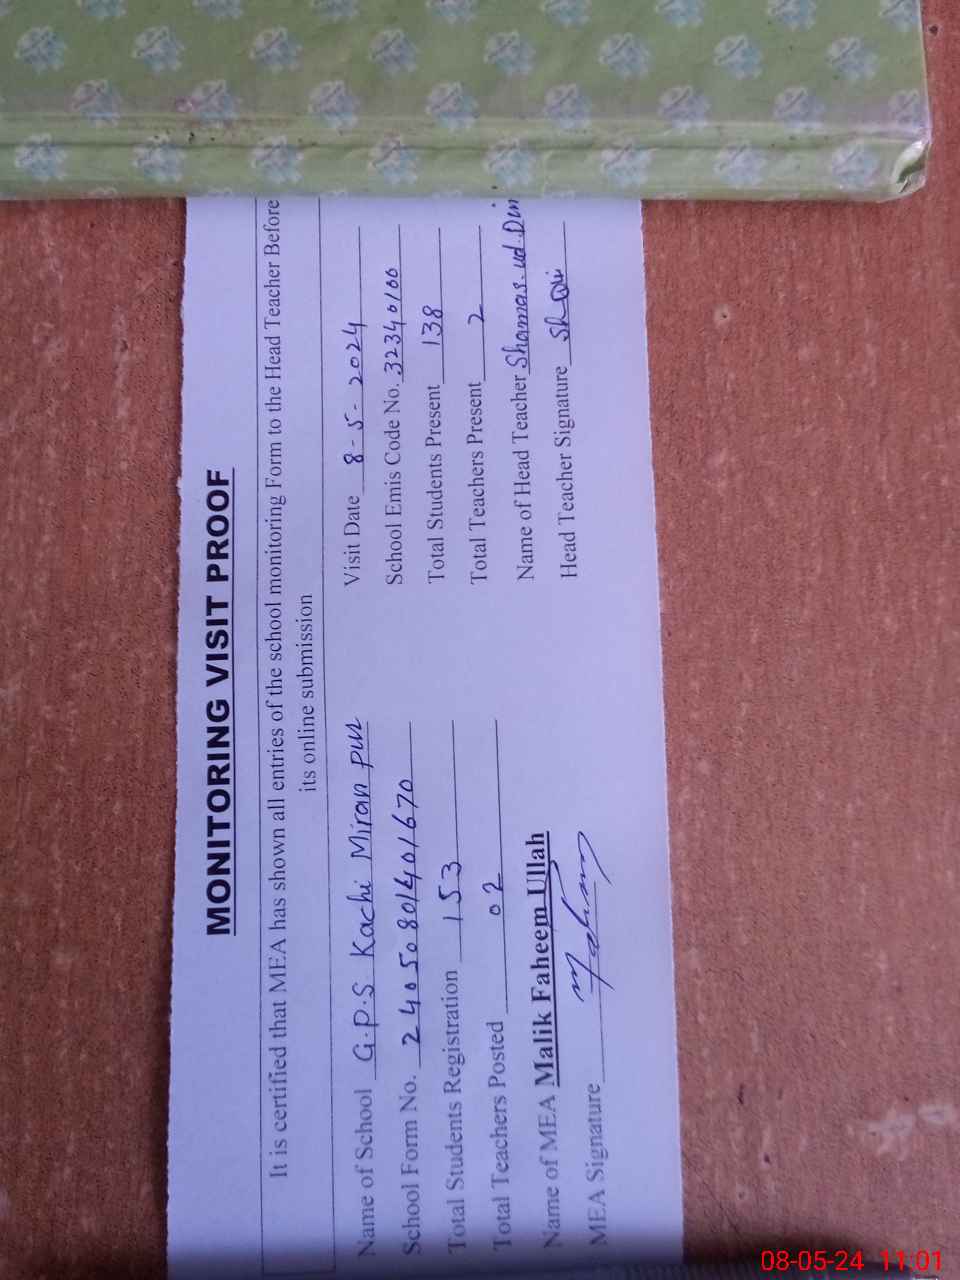 MONITORING VISIT PROOF
It is certified that MEA has shown all entries of the school monitoring Form to the Head Teacher Before
its online submission
Name of School G.P.S Kachi Miran pur
Visit Date 8-5-2024
School Form No. 24050801401670
School Emis Code No. 32340100
Total Students Registration 153
Total Students Present 138
Total Teachers Posted 02
Total Teachers Present 2
Name of MEA Malik Faheem Ullah
Name of Head Teacher Shamas-ud-Din
MEA Signature
Head Teacher Signature
08-05-24 11:01